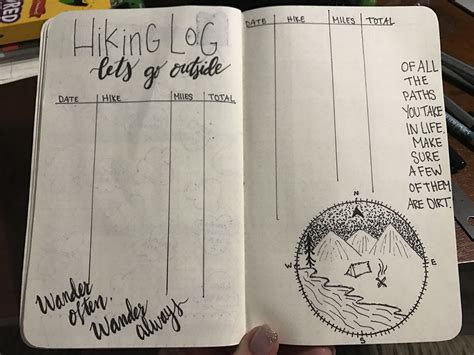 RED
HiKiNG LoG
let's go outside
DATE HIKE MILES TOTAL
Wander
often.
Wander
always
DATE HIKE MILES TOTAL
OF ALL
THE
PATHS
YOU TAKE
IN LIFE,
MAKE
SURE
A FEW
OF THEM
ARE DIRT.
N
W E
S